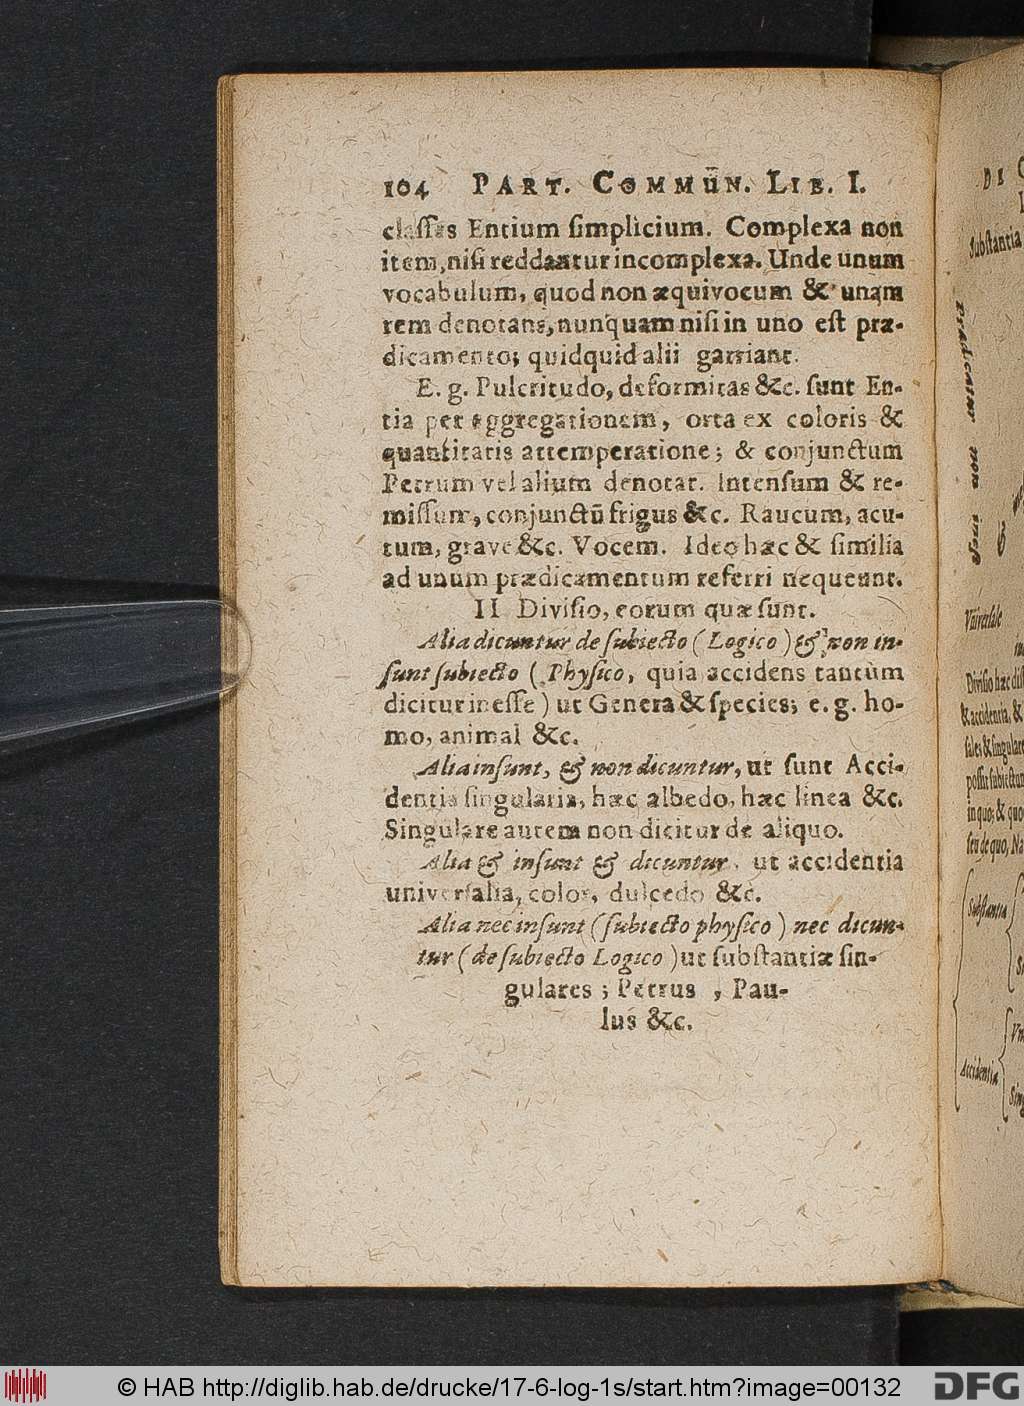 104 PART. COMMUÑ. LIB. I.
claſſes Entium ſimplicium. Complexa non
item, niſi reddantur incomplexa. Unde unum
vocabulum, quod non æquivocum & unam
rem denotans, nunquam niſi in uno eſt præ-
dicamento; quidquid alii garriant.
E. g. Pulcritudo, deformitas &c. ſunt En-
tia per aggregationem, orta ex coloris &
quantitatis attemperatione; & conjunctum
Petrum vel alium denotat. Intenſum & re-
miſſum, conjunctū frigus &c. Raucum, acu-
tum, grave &c. Vocem. Ideo hæc & ſimilia
ad unum prædicamentum referri nequeunt.
II Diviſio, eorum quæ ſunt.
Alia dicuntur de ſubiecto (Logico) & non in-
ſunt ſubiecto (Phyſico, quia accidens tantùm
dicitur ineſſe) ut Genera & ſpecies; e. g. ho-
mo, animal &c.
Alia inſunt, & non dicuntur, ut ſunt Acci-
dentia ſingularia, hæc albedo, hæc linea &c.
Singulare autem non dicitur de aliquo.
Alia & inſunt & dicuntur, ut accidentia
univerſalia, color, dulcedo &c.
Alia nec inſunt (ſubiecto phyſico) nec dicun-
tur (de ſubiecto Logico) ut ſubſtantiæ ſin-
gulares; Petrus, Pau-
lus &c.
DE
Subſtantia
Prædicatur non ineſt
&
Univerſale
Diviſio hæc
& accidentia, &
ſales & ſingulare
poſſit ſubiectum
in quo; & quo
ſeu de quo, Na
Subſtantia
Accidentia
© HAB http://diglib.hab.de/drucke/17-6-log-1s/start.htm?image=00132
DFG